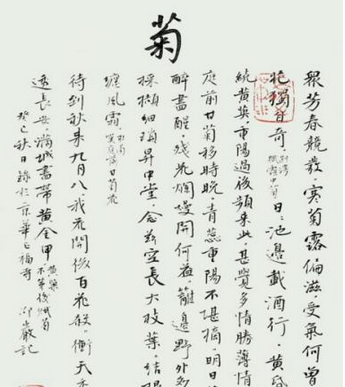 菊
眾芳春競發，寒菊露偏滋，受氣何曾
花獨自奇 日日池邊載酒行，黃昏
繞黃英，重陽過後頻來此，甚覺多情勝薄情
庭前甘菊移時晚，青蕊重陽不堪摘，明日
醉盡醒，殘花爛熳開何益，籬邊野外多
採擷細瑣昇中堂，念茲空長大枝葉，結根
纏風霜
待到秋來九月八我花開後百花殺，衝天
透長安，滿城盡帶黃金甲 黃巢 不第後賦菊
癸巳秋日錄於京華